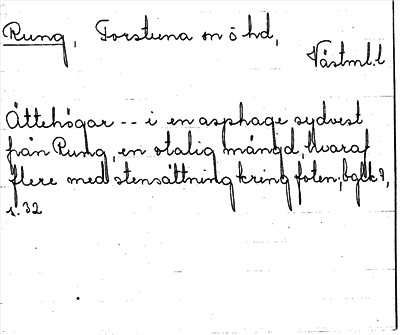 Rung, Torstuna sn ö hd,
Västml.l
Ättehögar -- i en asphage sydvest
från Rung, en otalig mängd, hvaraf
flere med stensättning kring foten; bglk 9,
s. 32